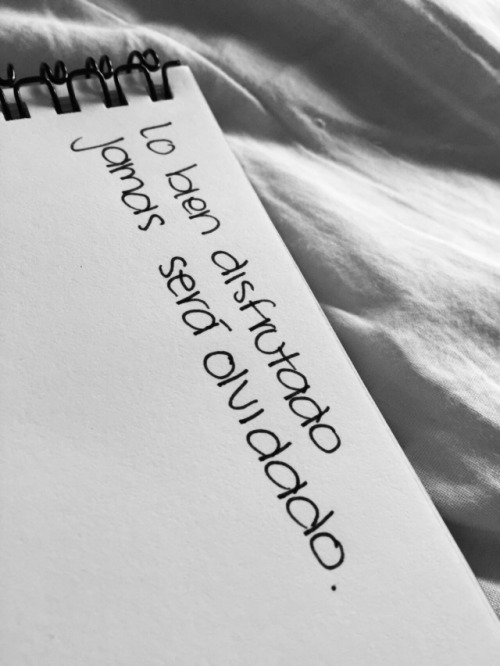 lo bien disfrutado
jamas será olvidado.